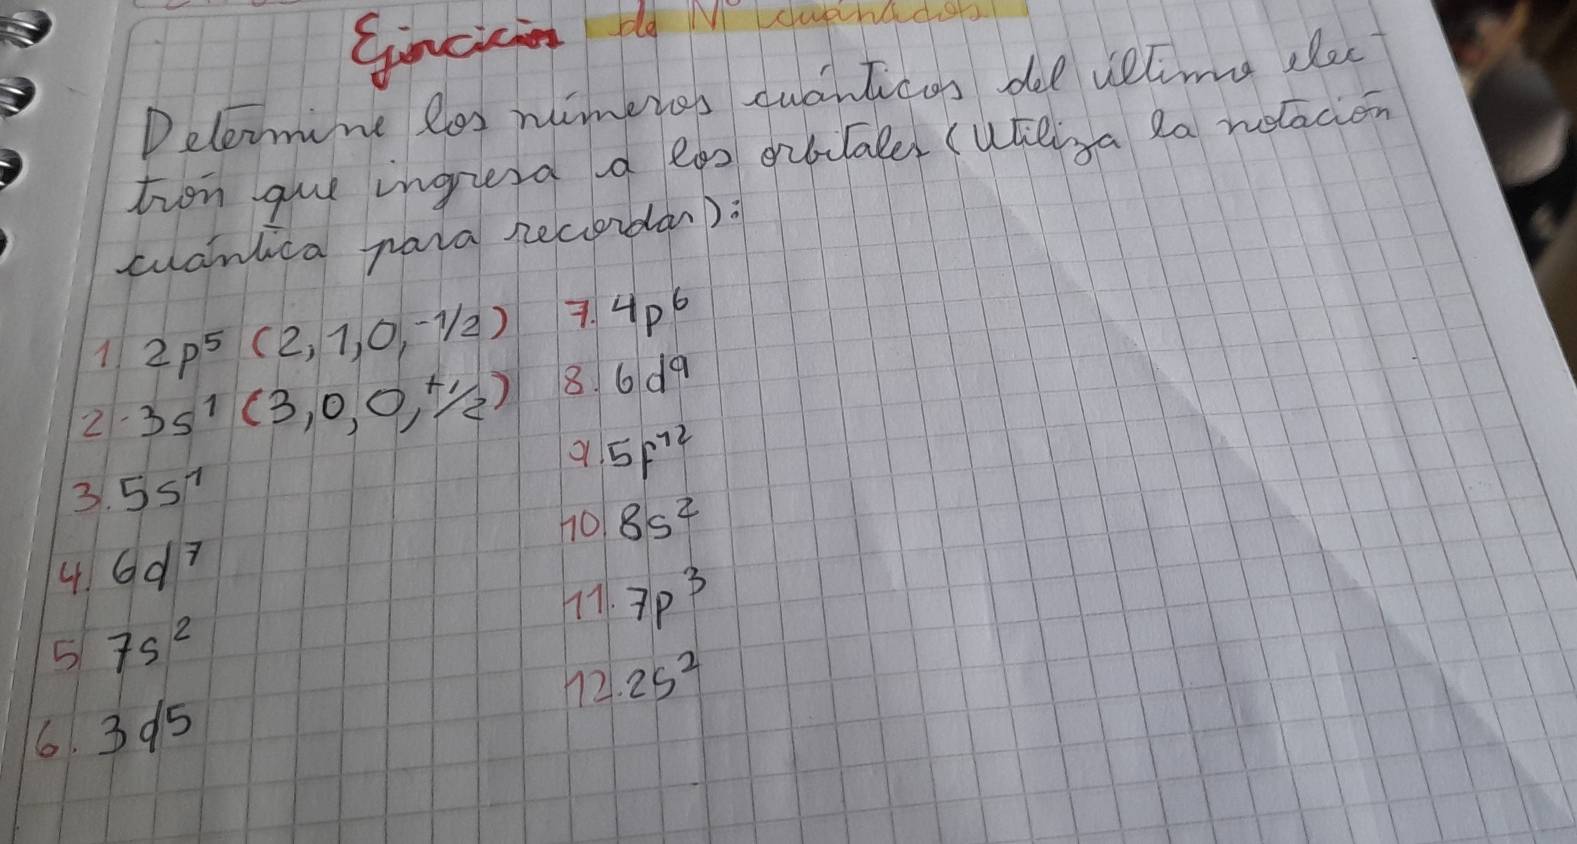 Ejercicios de N° cuánticos
Determine los números cuánticos del último elec-
trón que ingresa a los orbitales (Utiliza la notación
cuántica para recordar):
1. 2p⁵ (2,1,0,-1/2)
2. 3s¹ (3,0,0,+1/2)
3. 5s¹
4. 6d⁷
5 7s²
6. 3d5
7. 4p⁶
8. 6d⁹
9. 5f¹²
10. 8s²
11. 7p³
12. 2s²